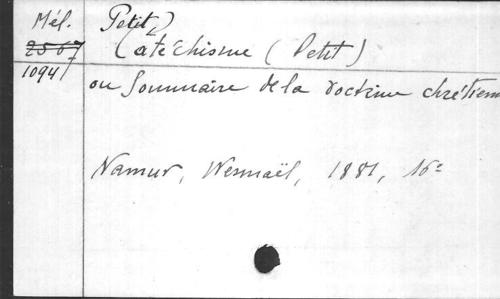 Mél.
2567
1094
Petit
Catéchisme (Petit)
ou Sommaire de la doctrine chrétienn
Namur, Wesmaël, 1881, 16°